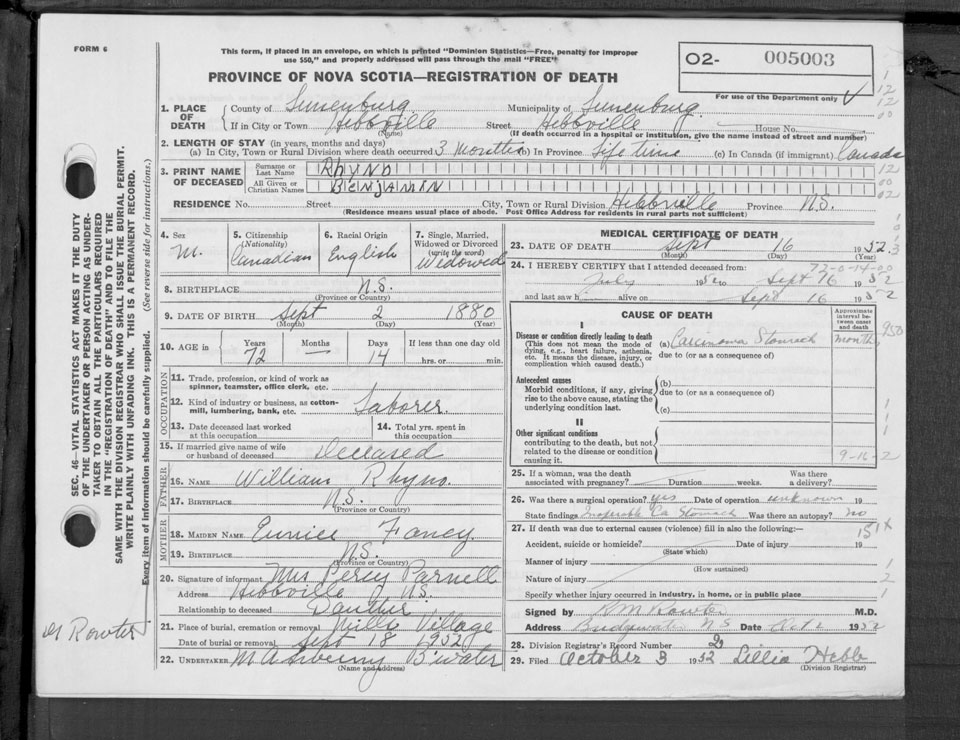 FORM 6
This form, if placed in an envelope, on which is printed "Dominion Statistics—Free, penalty for improper
use $50," and properly addressed will pass through the mail "FREE"
PROVINCE OF NOVA SCOTIA—REGISTRATION OF DEATH
02- 005003
For use of the Department only
1. PLACE OF DEATH
County of Lunenburg Municipality of Lunenburg
If in City or Town Hebbville (Name) Street Hebbville House No.
(If death occurred in a hospital or institution, give the name instead of street and number)
2. LENGTH OF STAY (in years, months and days)
(a) In City, Town or Rural Division where death occurred 3 months (b) In Province Life time (c) In Canada (if immigrant) Canada
3. PRINT NAME OF DECEASED
Surname or Last Name RHYNO
All Given or Christian Names BENJAMIN
RESIDENCE No. Street City, Town or Rural Division Hebbville Province N.S.
(Residence means usual place of abode. Post Office Address for residents in rural parts not sufficient)
4. Sex M.
5. Citizenship (Nationality) Canadian
6. Racial Origin English
7. Single, Married, Widowed or Divorced (write the word) Widowed
8. BIRTHPLACE N.S.
(Province or Country)
9. DATE OF BIRTH Sept 2 1880
(Month) (Day) (Year)
10. AGE in Years 72 Months — Days 14 If less than one day old hrs. or min.
OCCUPATION
11. Trade, profession, or kind of work as spinner, teamster, office clerk, etc.
12. Kind of industry or business, as cotton-mill, lumbering, bank, etc. Laborer.
13. Date deceased last worked at this occupation
14. Total yrs. spent in this occupation
15. If married give name of wife or husband of deceased Deceased
FATHER
16. NAME William Rhyno.
17. BIRTHPLACE N.S.
(Province or Country)
MOTHER
18. MAIDEN NAME Eunice Fancy
19. BIRTHPLACE N.S.
(Province or Country)
20. Signature of informant Mrs Percy Parnell
Address Hebbville N.S.
Relationship to deceased Dauther
21. Place of burial, cremation or removal Mills Village
Date of burial or removal Sept 18 1952
22. UNDERTAKER B'water
(Name and address)
MEDICAL CERTIFICATE OF DEATH
23. DATE OF DEATH Sept 16 1952
(Month) (Day) (Year)
72-0-14-00
24. I HEREBY CERTIFY that I attended deceased from:
July 1952 to Sept 16 1952
and last saw h alive on Sept 16 1952
CAUSE OF DEATH
Approximate interval between onset and death
I
Disease or condition directly leading to death
(This does not mean the mode of dying, e.g., heart failure, asthenia, etc. It means the disease, injury, or complication which caused death.)
(a) Carcinoma Stomach months
due to (or as a consequence of)
Antecedent causes
Morbid conditions, if any, giving rise to the above cause, stating the underlying condition last.
(b)
due to (or as a consequence of)
(c)
II
Other significant conditions
contributing to the death, but not related to the disease or condition causing it.
9-16-2
25. If a woman, was the death associated with pregnancy? Duration weeks. Was there a delivery?
26. Was there a surgical operation? yes Date of operation unknown 19
State findings Inoperable Ca Stomach Was there an autopsy? no
27. If death was due to external causes (violence) fill in also the following:—
151x
Accident, suicide or homicide? Date of injury 19
(State which)
Manner of injury
(How sustained)
Nature of injury
Specify whether injury occurred in industry, in home, or in public place
Signed by M.D.
Address Bridgewater N S Date Oct 2 1952
28. Division Registrar's Record Number 2
29. Filed October 3 1952 Lillia Hebb
(Division Registrar)
SEC. 46—VITAL STATISTICS ACT MAKES IT THE DUTY
OF THE UNDERTAKER OR PERSON ACTING AS UNDER-
TAKER TO OBTAIN ALL THE PARTICULARS REQUIRED
IN THE "REGISTRATION OF DEATH" AND TO FILE THE
SAME WITH THE DIVISION REGISTRAR WHO SHALL ISSUE THE BURIAL PERMIT.
WRITE PLAINLY WITH UNFADING INK. THIS IS A PERMANENT RECORD.
Every item of information should be carefully supplied. (See reverse side for instructions.)